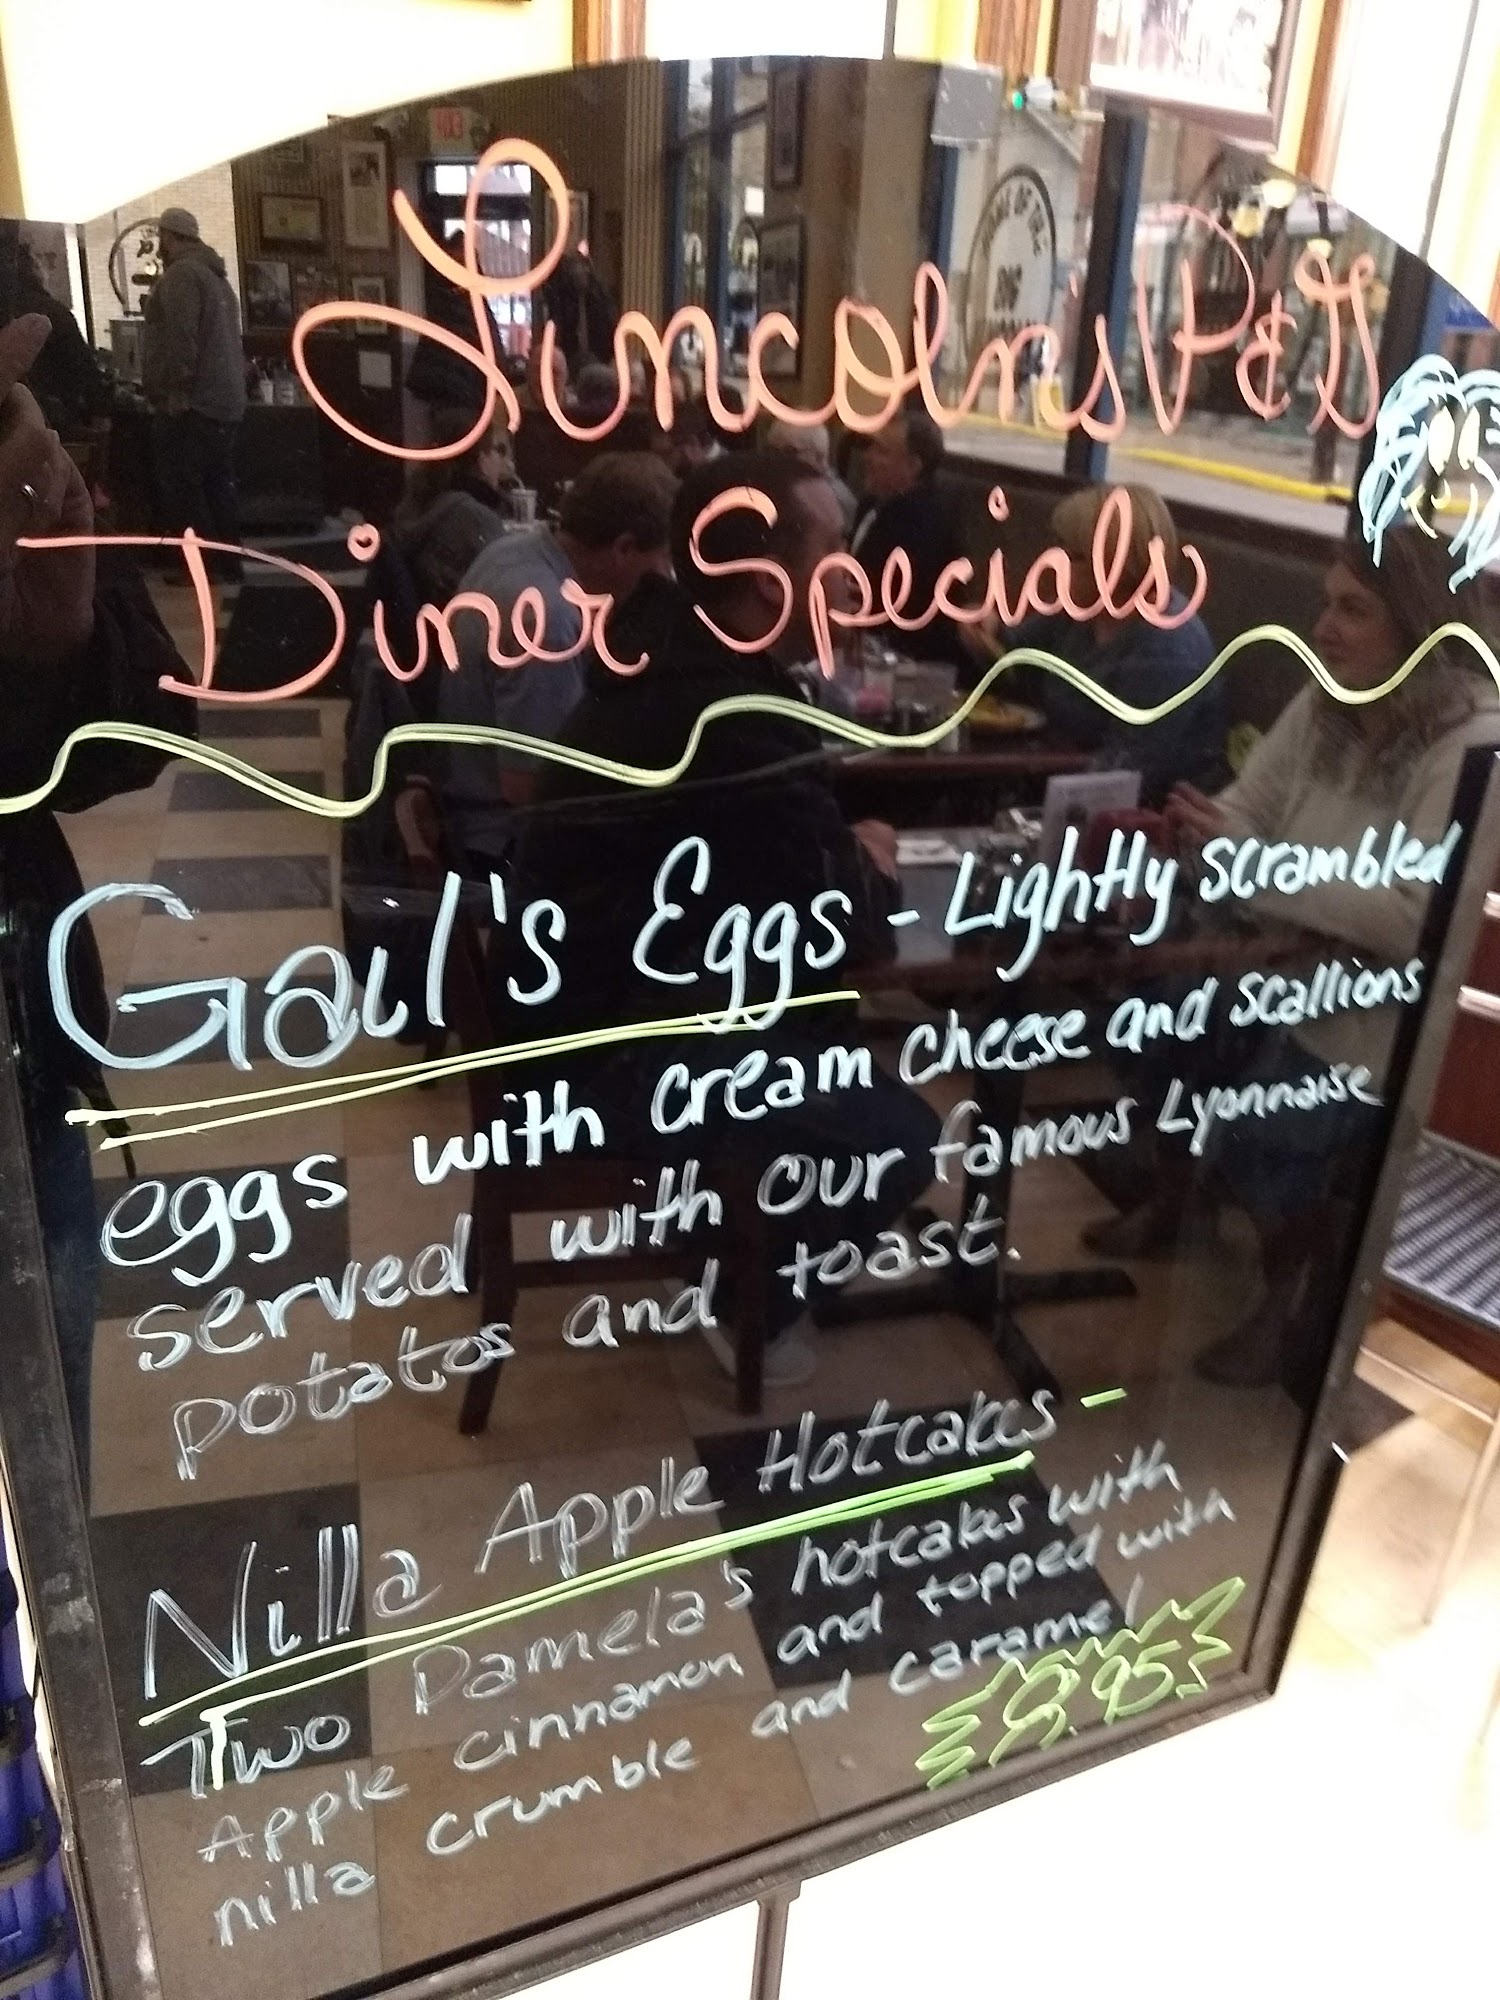 Lincoln's P&G
Diner Specials
Gail's Eggs - Lightly scrambled
eggs with cream cheese and scallions
served with our famous Lyonnaise
potatos and toast.
Nilla Apple Hotcakes -
Two Pamela's hotcakes with
Apple cinnamon and topped with
nilla crumble and caramel
9.95